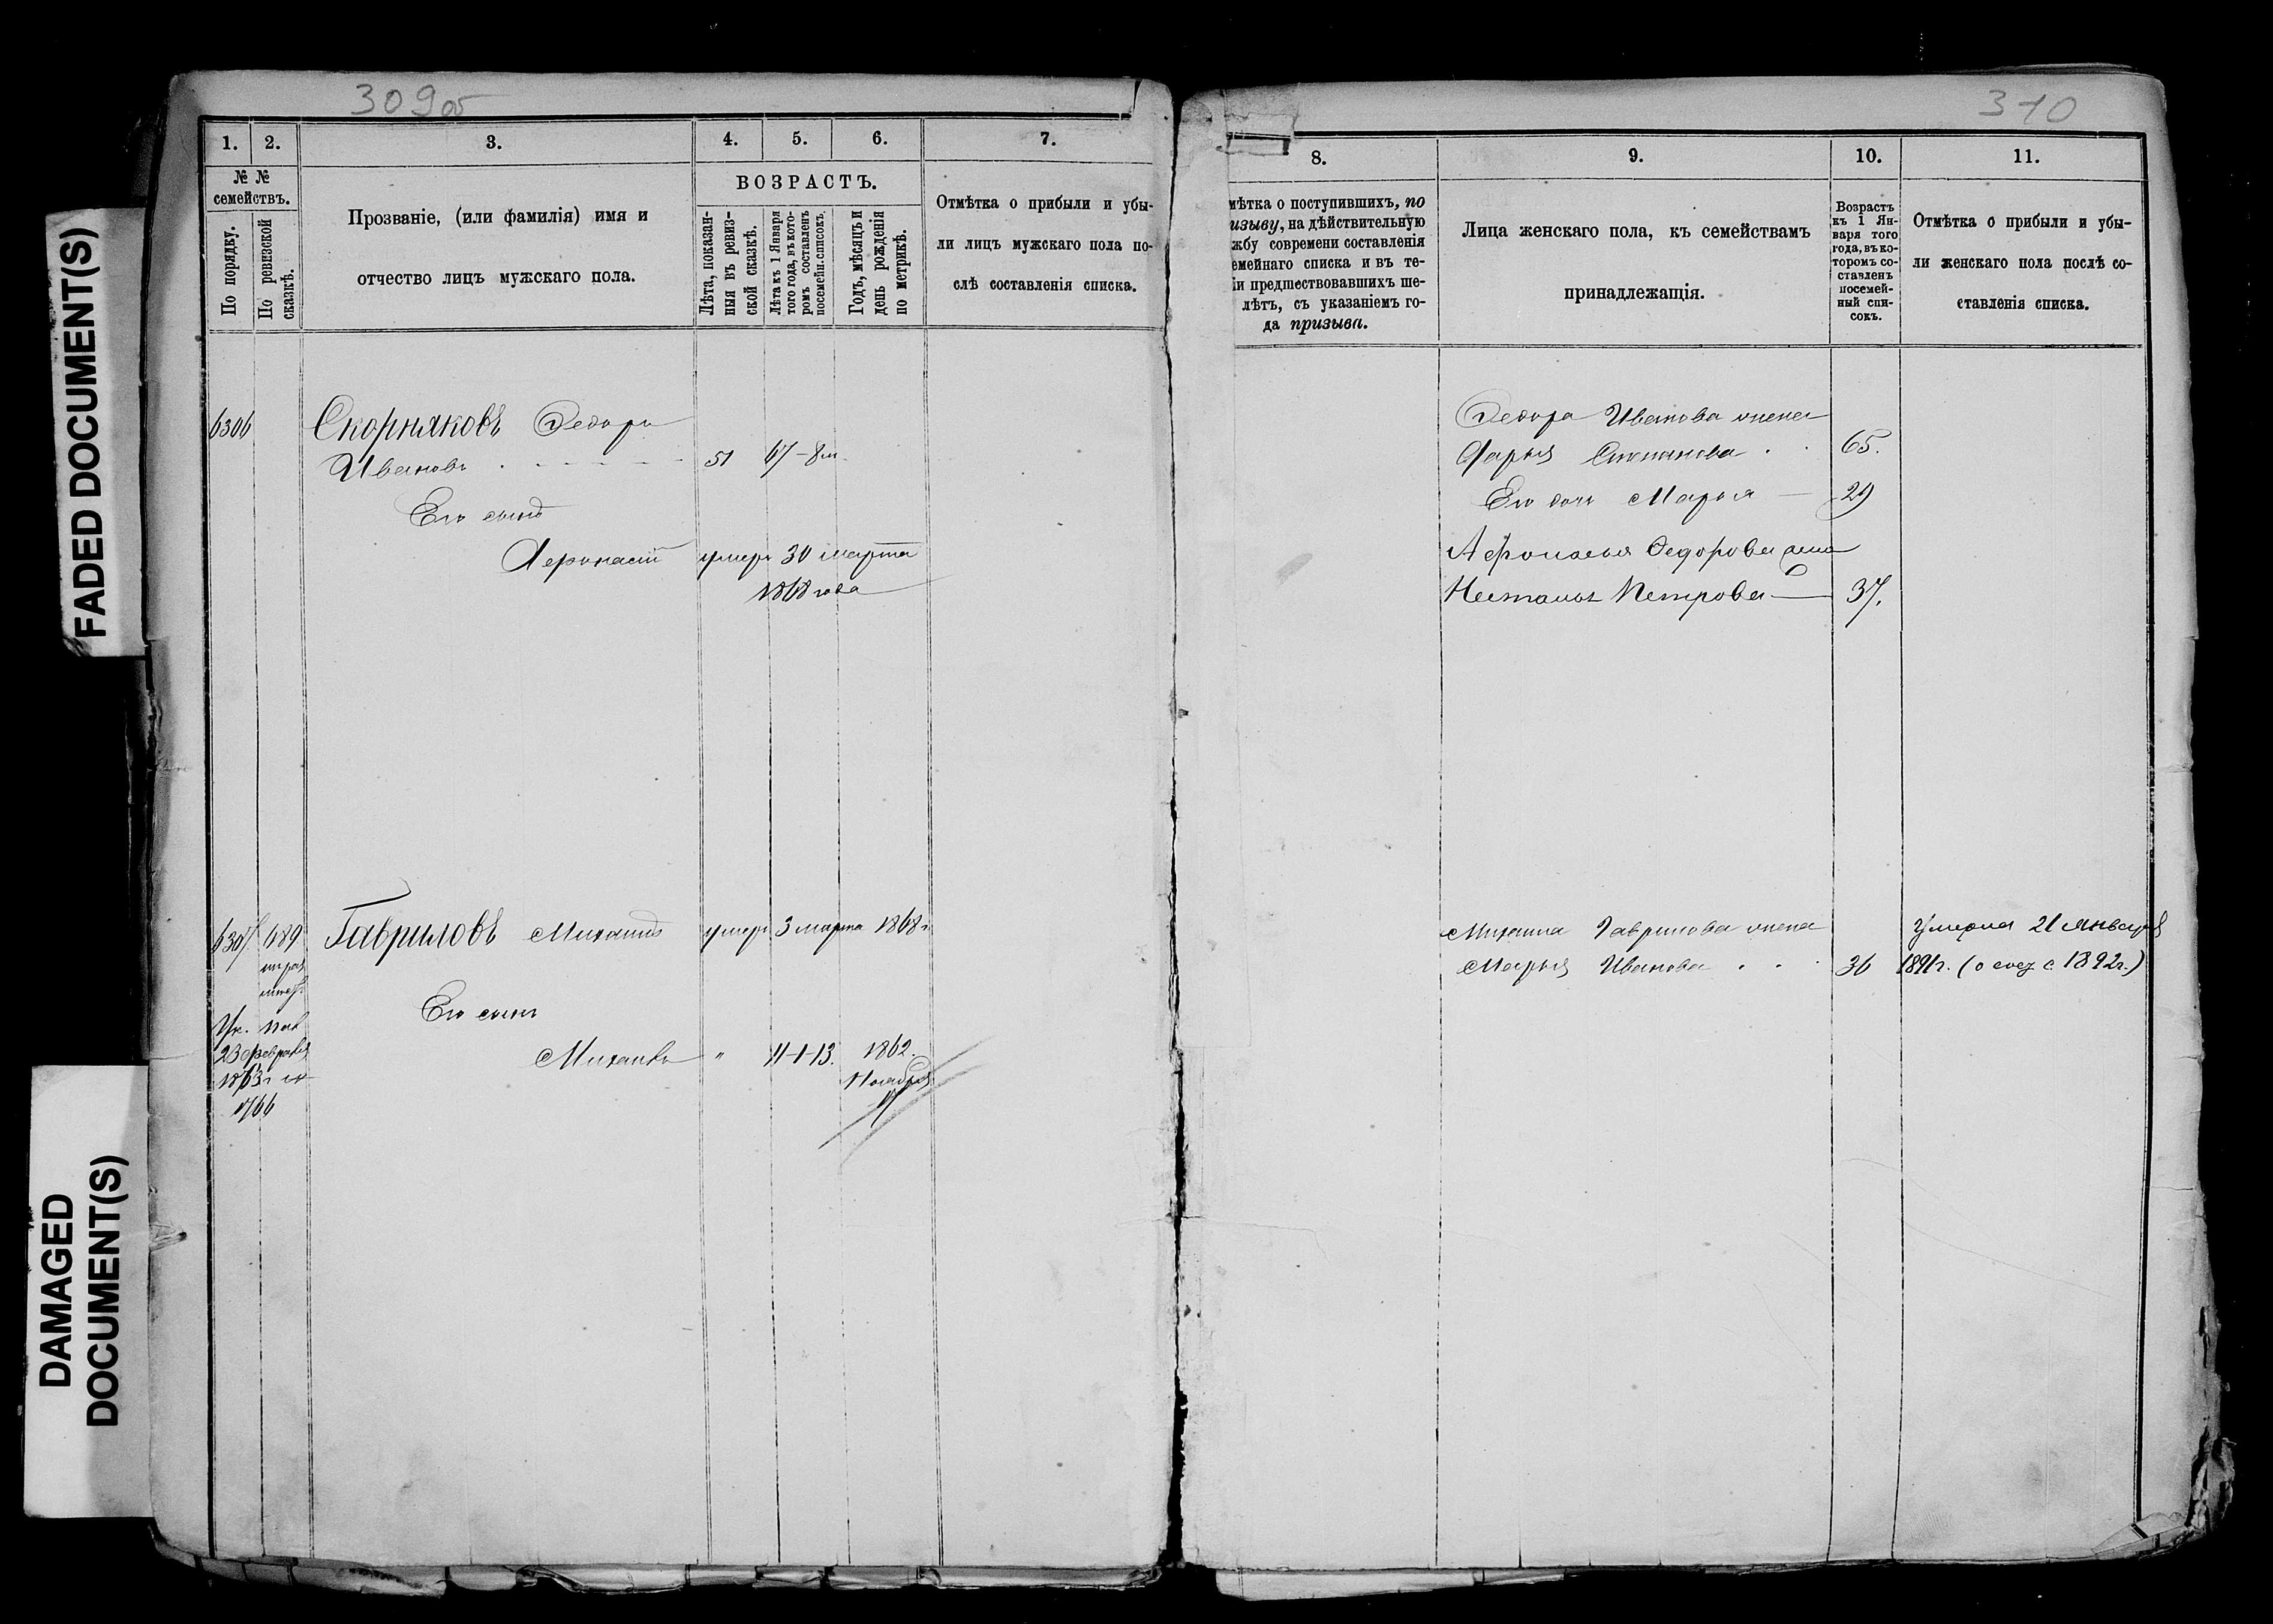 309 об
1. 2. 3. 4. 5. 6. 7.
№ №
семействъ.
По порядку.
По ревизской
сказкѣ.
Прозваніе, (или фамилія) имя и
отчество лицъ мужскаго пола.
ВОЗРАСТЪ.
Лѣта, показан-
ныя въ ревиз-
ской сказкѣ.
Лѣта къ 1 Января
того года, въ кото-
ромъ составленъ
посемейн. списокъ.
Годъ, мѣсяцъ и
день рожденія
по метрикѣ.
Отмѣтка о прибыли и убы-
ли лицъ мужскаго пола по-
слѣ составленія списка.
6306 Скорняковъ Ѳедоръ
Ивановъ 51 67-8м.
Его сынъ
Афонасій умеръ 30 марта
1868 года
6307. 689 Гавриловъ Михаилъ умеръ 3 марта 1868 г
Его сынъ
Ук. 
23 февраля Михаилъ " 11-1-13. 1862.
1863 г Ноября
1766 17
310
8. 9. 10. 11.
мѣтка о поступившихъ, по
изыву, на дѣйствительную
жбу современи составленія
емейнаго списка и въ те-
іи предшествовавшихъ ше-
лѣтъ, съ указаніемъ го-
да призыва.
Лица женскаго пола, къ семействамъ
принадлежащія.
Возрастъ
къ 1 Ян-
варя того
года, въ ко-
торомъ со-
ставленъ
посемей-
ный спи-
сокъ.
Отмѣтка о прибыли и убы-
ли женскаго пола послѣ со-
ставленія списка.
Ѳедора Иванова жена
Дарья Степанова 65.
Его дочь Марья 29
Афонасья Ѳедорова жена
Наталья Петрова 37.
Михаила Гаврилова жена Умерла 21 Января
Марья Иванова 36 1891 г. (о 1892 г.)
FADED DOCUMENT(S)
DAMAGED
DOCUMENT(S)